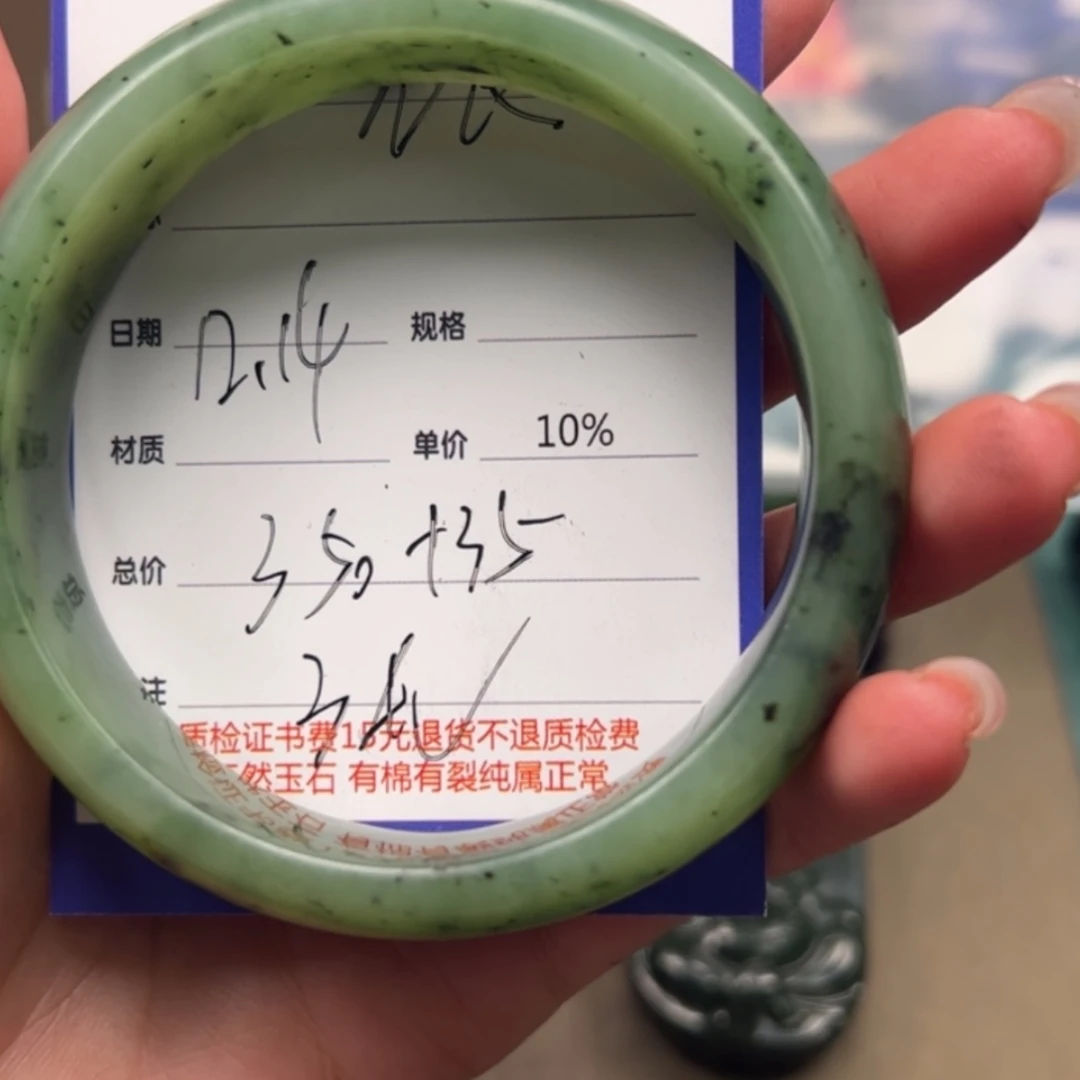 日期 12.14 规格
材质 单价 10%
总价 350+35
注
质检证书费15元退货不退质检费
然玉石 有棉有裂纯属正常